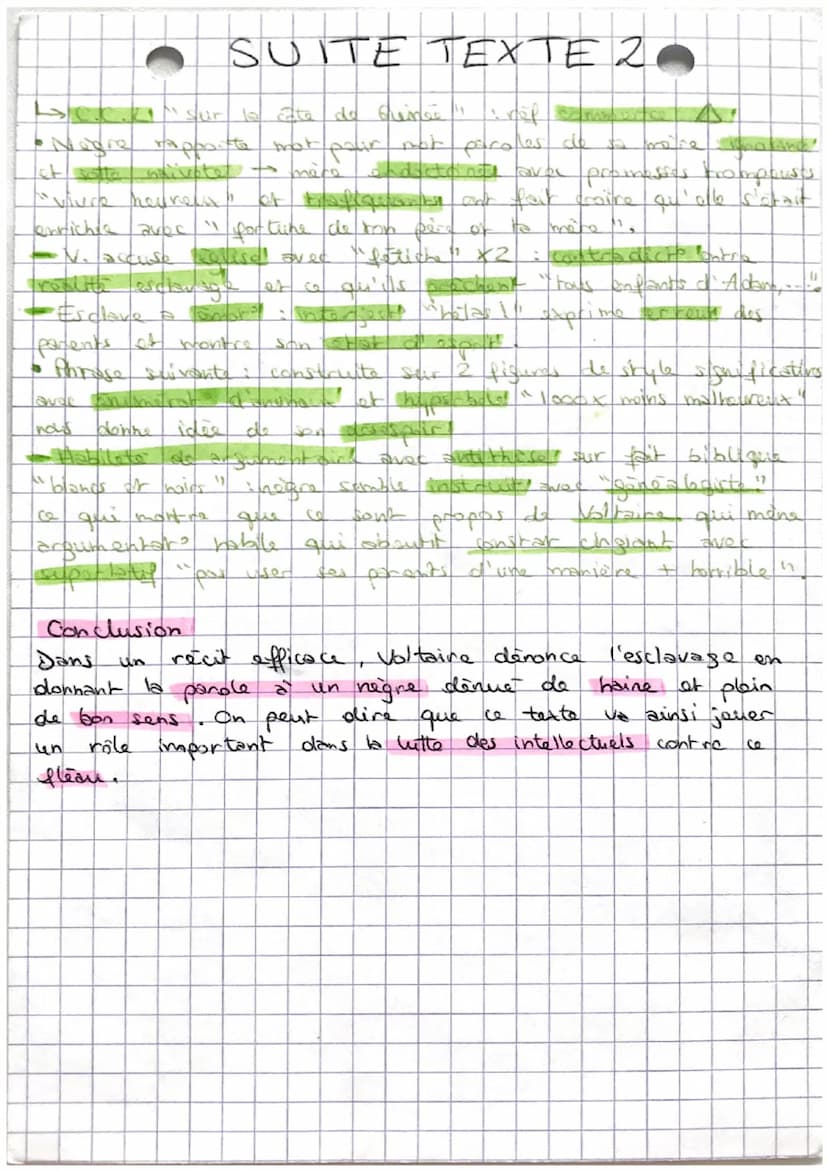 SUITE TEXTE 2
↳ C.C.L "sur la côte de Guinée" : réf commerce ⚠
• Nègre rapporte mot pour mot paroles de sa mère
et sotte naïveté → mère endoctriné avec promesses trompeuses
"vivre heureux" et trafiquants ont fait croire qu'elle s'était
enrichie avec "fortune de ton père et ta mère".
- V. accuse église avec "fétiche" x2 : contradict° entre
réalité esclavage et ce qu'ils prêchent "tous enfants d'Adam,..."
- Esclave a : interject° "hélas !" exprime erreur des
parents et montre son état d'esprit.
• Phrase suivante : construite sur 2 figures de style significatives
avec énumérat° d'animaux et hyperbole "1000x moins malheureux"
nous donne idée de son désespoir
- Habileté de avec antithèse sur fait biblique
"blancs et noirs" : nègre semble instruit avec "généalogiste"
ce qui montre que ce sont propos de Voltaire qui mène
argumentat° habile qui aboutit constat avec
superlatif "pas user ses parents d'une manière + horrible".
Conclusion
Dans un récit efficace, Voltaire dénonce l'esclavage en
donnant la parole à un nègre dénué de haine et plein
de bon sens. On peut dire que ce texte va ainsi jouer
un rôle important dans la lutte des intellectuels contre ce
fléau.